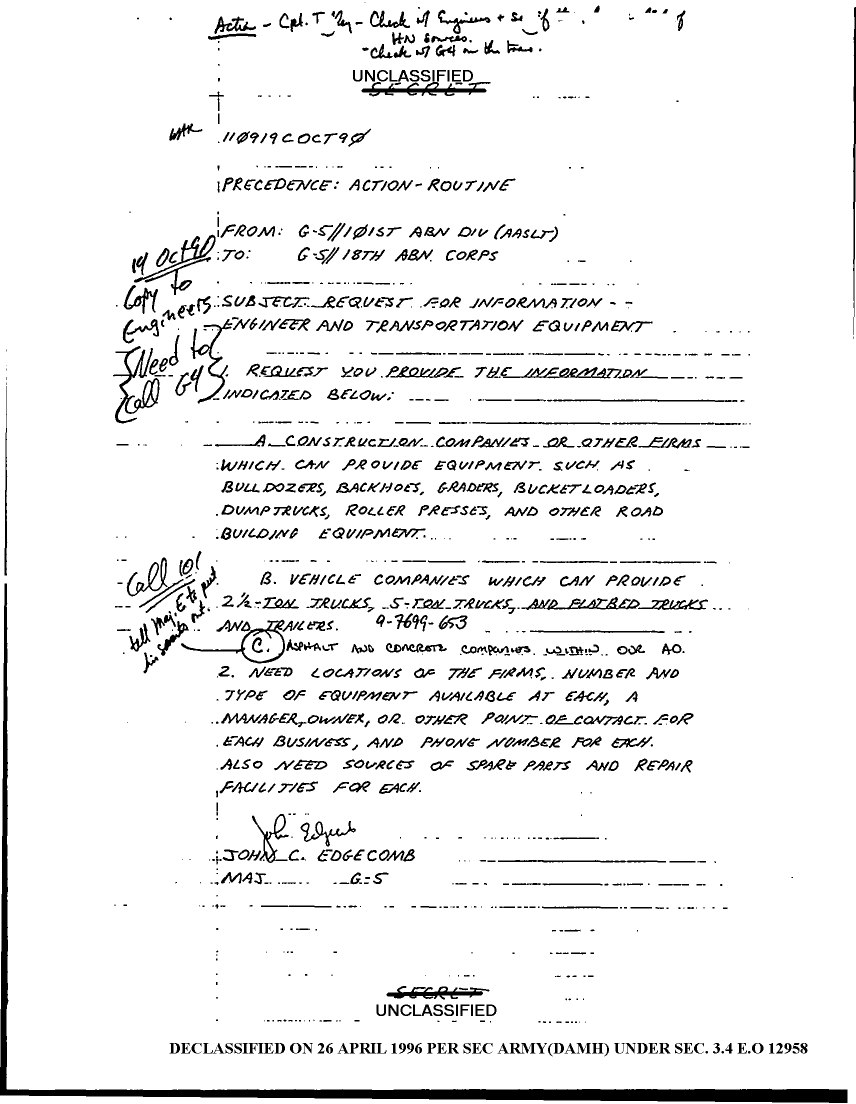 Action - Cpt. T - Check w/ Engineers + See if
HN Sources.
- Check w/ G4 on the trans.
UNCLASSIFIED
SECRET
110919C OCT 90
PRECEDENCE: ACTION-ROUTINE
FROM: G-5//101ST ABN DIV (AASLT)
TO: G-5//18TH ABN. CORPS
19 Oct 90
Copy to
Engineers
Need to
Call G4
SUBJECT: REQUEST FOR INFORMATION --
ENGINEER AND TRANSPORTATION EQUIPMENT
1. REQUEST YOU PROVIDE THE INFORMATION
INDICATED BELOW:
A. CONSTRUCTION COMPANIES OR OTHER FIRMS
WHICH CAN PROVIDE EQUIPMENT SUCH AS
BULLDOZERS, BACKHOES, GRADERS, BUCKETLOADERS,
DUMPTRUCKS, ROLLER PRESSES, AND OTHER ROAD
BUILDING EQUIPMENT.
Call 101
tell Maj. E to put
his scouts out.
B. VEHICLE COMPANIES WHICH CAN PROVIDE
2½-TON TRUCKS, 5-TON TRUCKS, AND FLATBED TRUCKS
AND TRAILERS. 9-7699-653
C. ASPHALT AND CONCRETE COMPANIES WITHIN OUR AO.
2. NEED LOCATIONS OF THE FIRMS, NUMBER AND
TYPE OF EQUIPMENT AVAILABLE AT EACH, A
MANAGER, OWNER, OR OTHER POINT OF CONTACT FOR
EACH BUSINESS, AND PHONE NUMBER FOR EACH.
ALSO NEED SOURCES OF SPARE PARTS AND REPAIR
FACILITIES FOR EACH.
John Edgecomb
JOHN C. EDGECOMB
MAJ G-5
SECRET
UNCLASSIFIED
DECLASSIFIED ON 26 APRIL 1996 PER SEC ARMY(DAMH) UNDER SEC. 3.4 E.O 12958